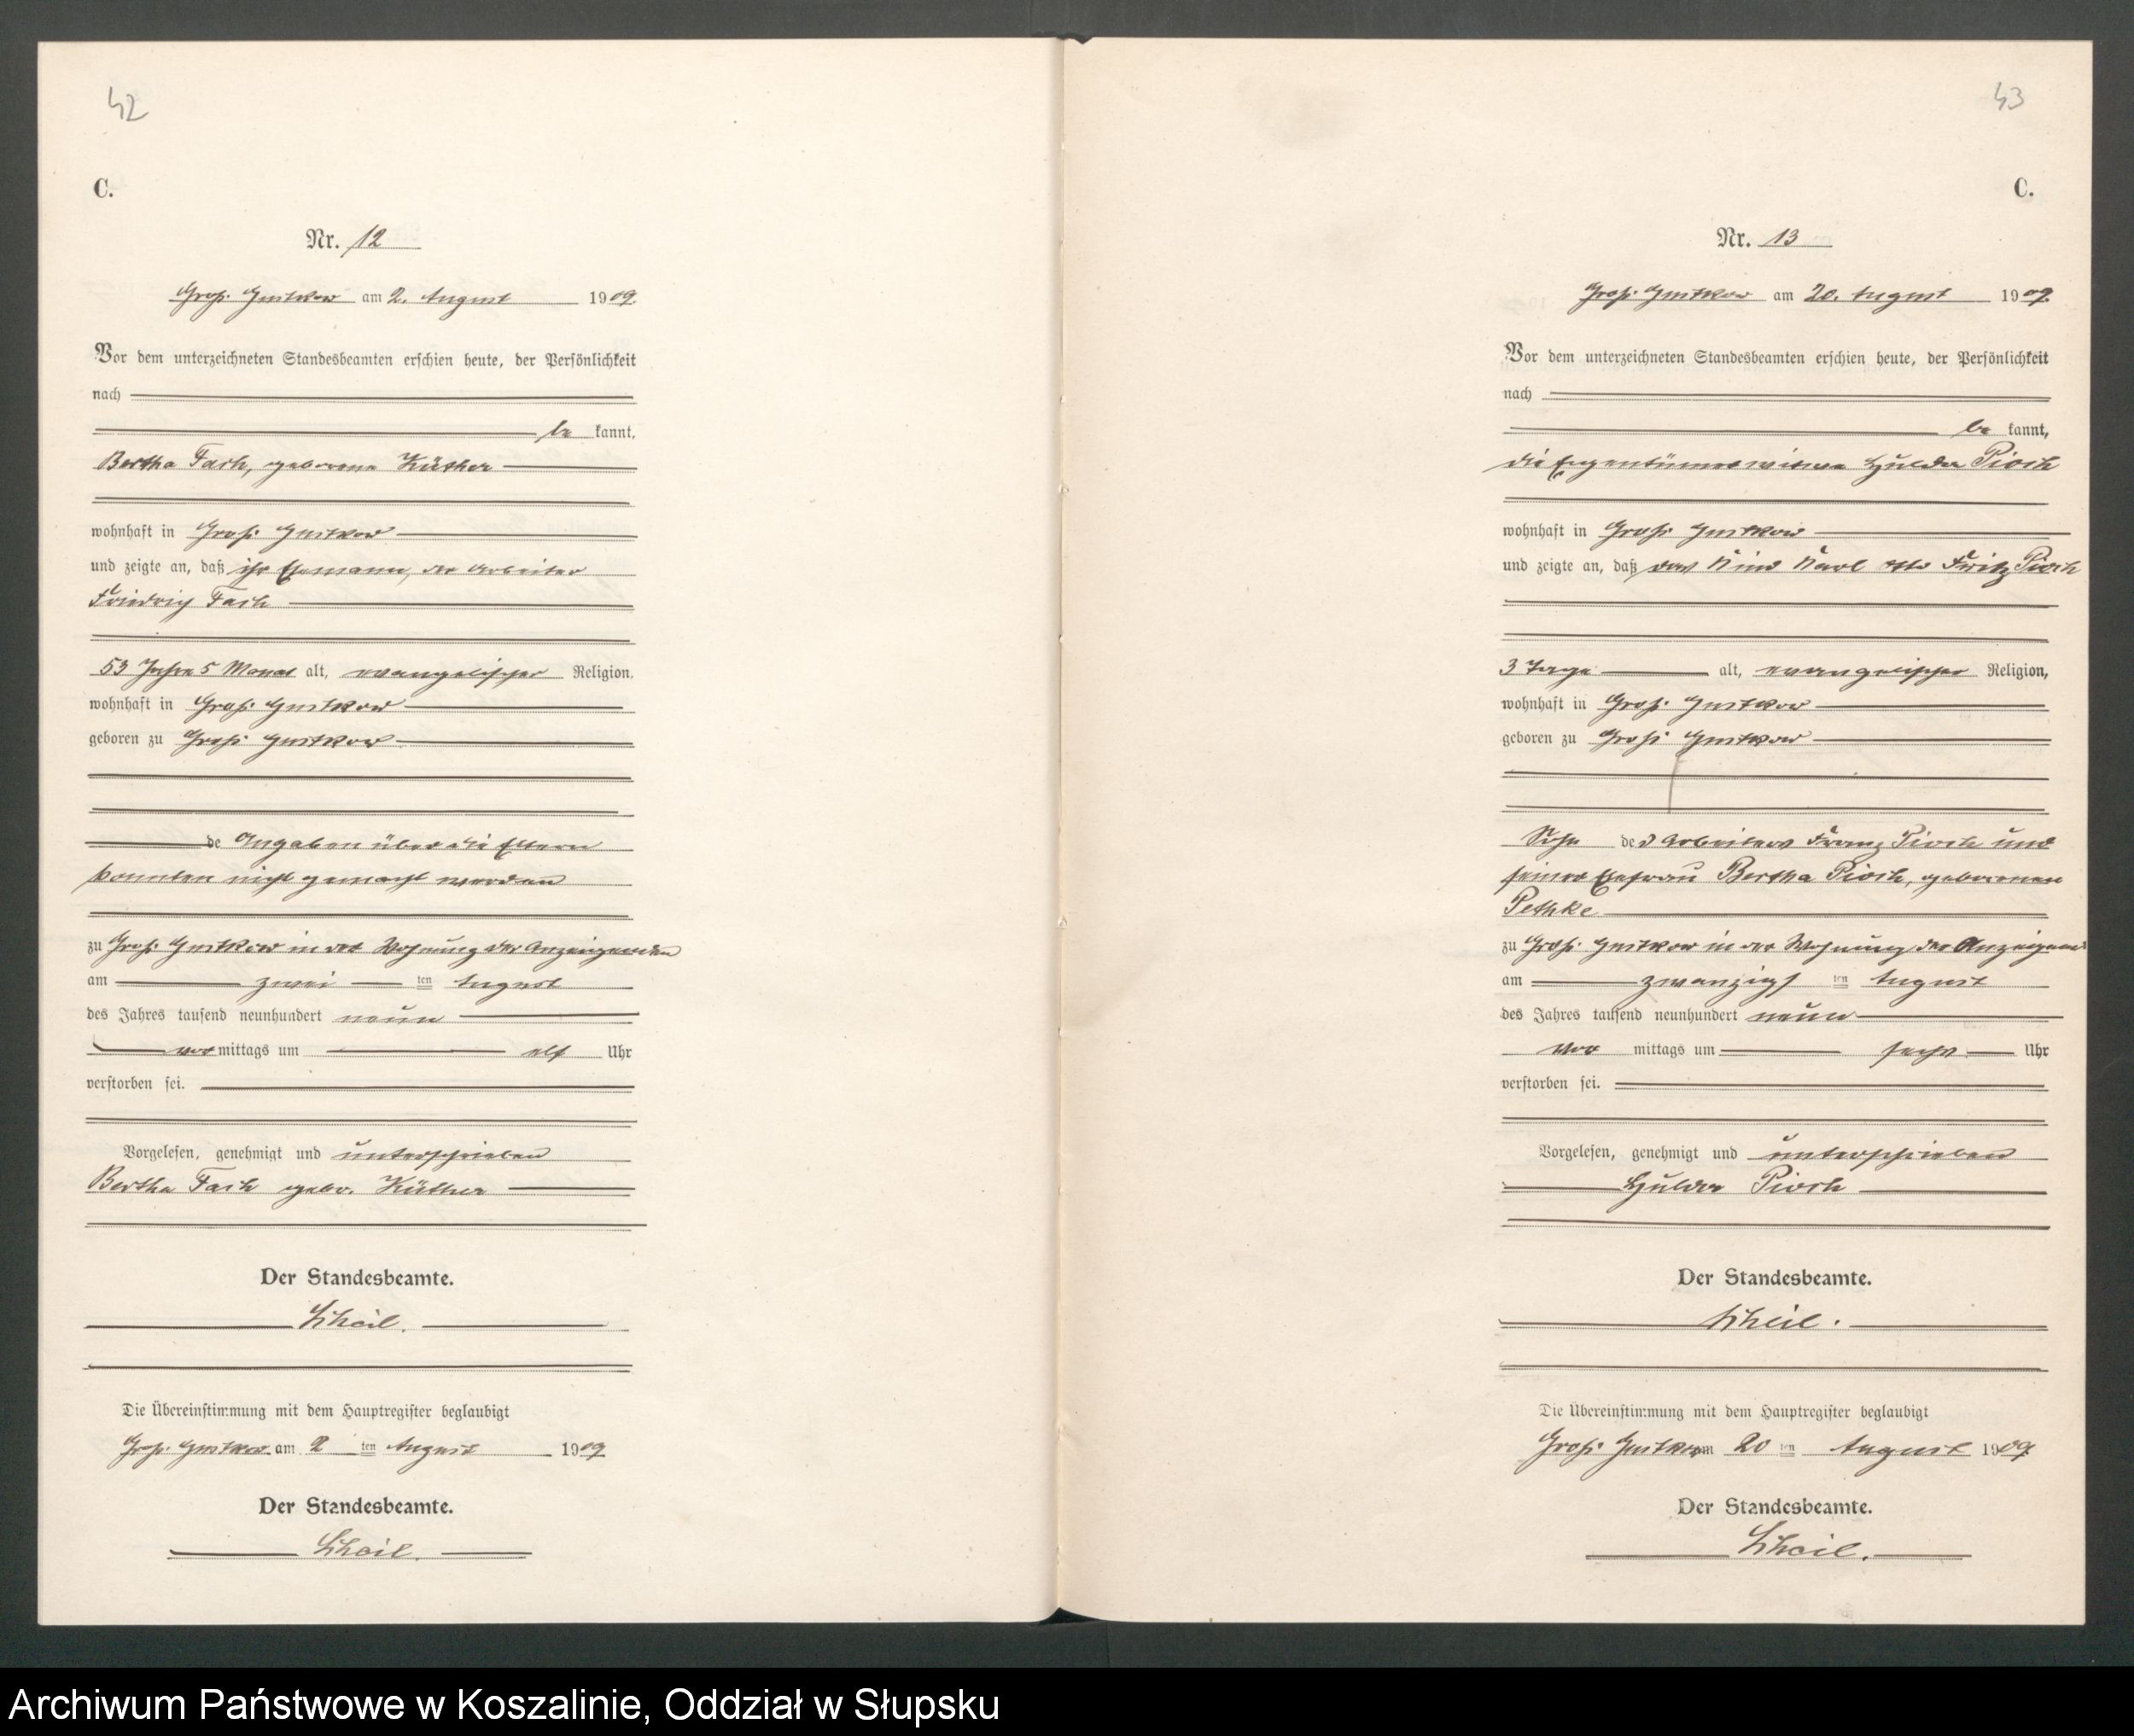 42
C.
Nr. 12
Groß Gustkow am 2. August 1909
Vor dem unterzeichneten Standesbeamten erschien heute, der Persönlichkeit
nach
be kannt,
Bertha Fach, geborene Küther
wohnhaft in Groß Gustkow
und zeigte an, daß ihr Ehemann, der Arbeiter
Friedrich Fach
53 Jahre 5 Monat alt, evangelischer Religion,
wohnhaft in Groß Gustkow
geboren zu Groß Gustkow
de Angaben über die Eltern
konnten nicht gemacht werden
zu Groß Gustkow in der Wohnung der Anzeigenden
am zwei ten August
des Jahres tausend neunhundert neun
vor mittags um elf Uhr
verstorben sei.
Vorgelesen, genehmigt und unterschrieben
Bertha Fach gebor. Küther
Der Standesbeamte.
Die Übereinstimmung mit dem Hauptregister beglaubigt
Groß Gustkow am 2 ten August 1909
Der Standesbeamte.
43
C.
Nr. 13
Groß Gustkow am 20. August 1909.
Vor dem unterzeichneten Standesbeamten erschien heute, der Persönlichkeit
nach
be kannt,
die Eigentümerwitwe Hulda Pioch
wohnhaft in Groß Gustkow
und zeigte an, daß das Kind Karl Otto Fritz Pioch
3 Tage alt, evangelischer Religion,
wohnhaft in Groß Gustkow
geboren zu Groß Gustkow
Sohn des Arbeiters Franz Pioch und
seiner Ehefrau Bertha Pioch, geborenen
Pethke
zu Groß Gustkow in der Wohnung der Anzeigend
am zwanzigs ten August
des Jahres tausend neunhundert neun
vor mittags um sechs Uhr
verstorben sei.
Vorgelesen, genehmigt und unterschrieben
Hulda Pioch
Der Standesbeamte.
Die Übereinstimmung mit dem Hauptregister beglaubigt
Groß Gustkow am 20 ten August 1909
Der Standesbeamte.
Archiwum Państwowe w Koszalinie, Oddział w Słupsku